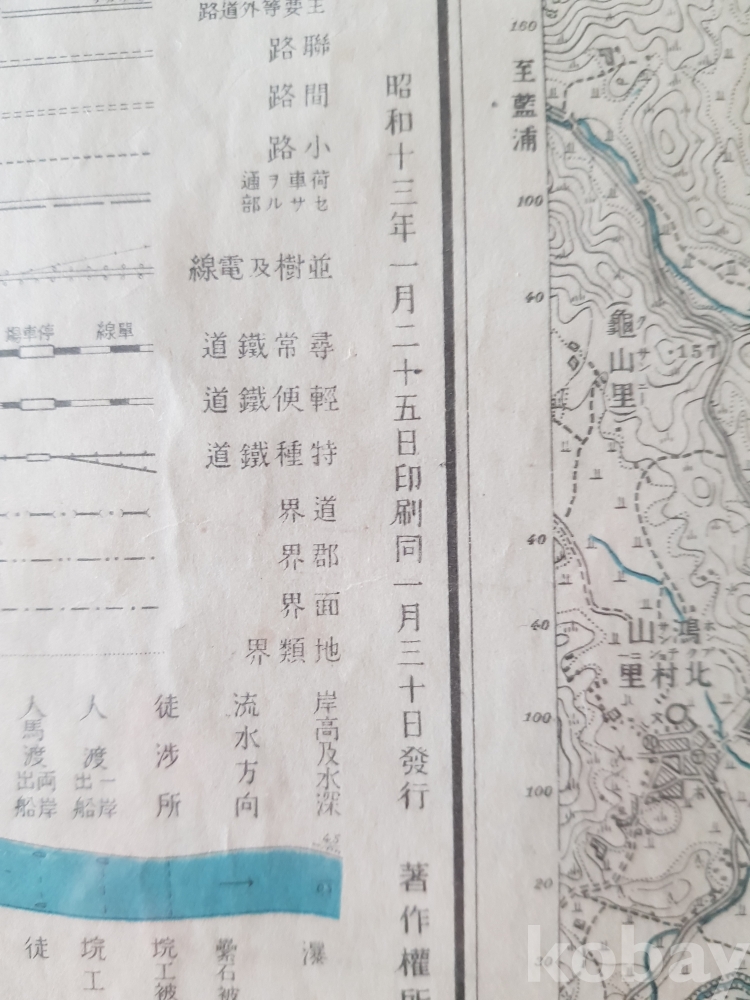 主要等外道路
聯路
間路
小路
荷車ヲ通
セサル部
並樹及電線
單線
停車場
尋常鐵道
輕便鐵道
特種鐵道
道界
郡界
面界
地類界
岸高及水深
流水方向
徒涉所
人渡
一岸出船
人馬渡
兩岸出船
4.5
瀑
徒
昭和十三年一月二十五日印刷同一月三十日發行
著作權所
至藍浦
160
100
40
40
40
100
100
20
(龜山里)
157
鴻山
北村里
kobay